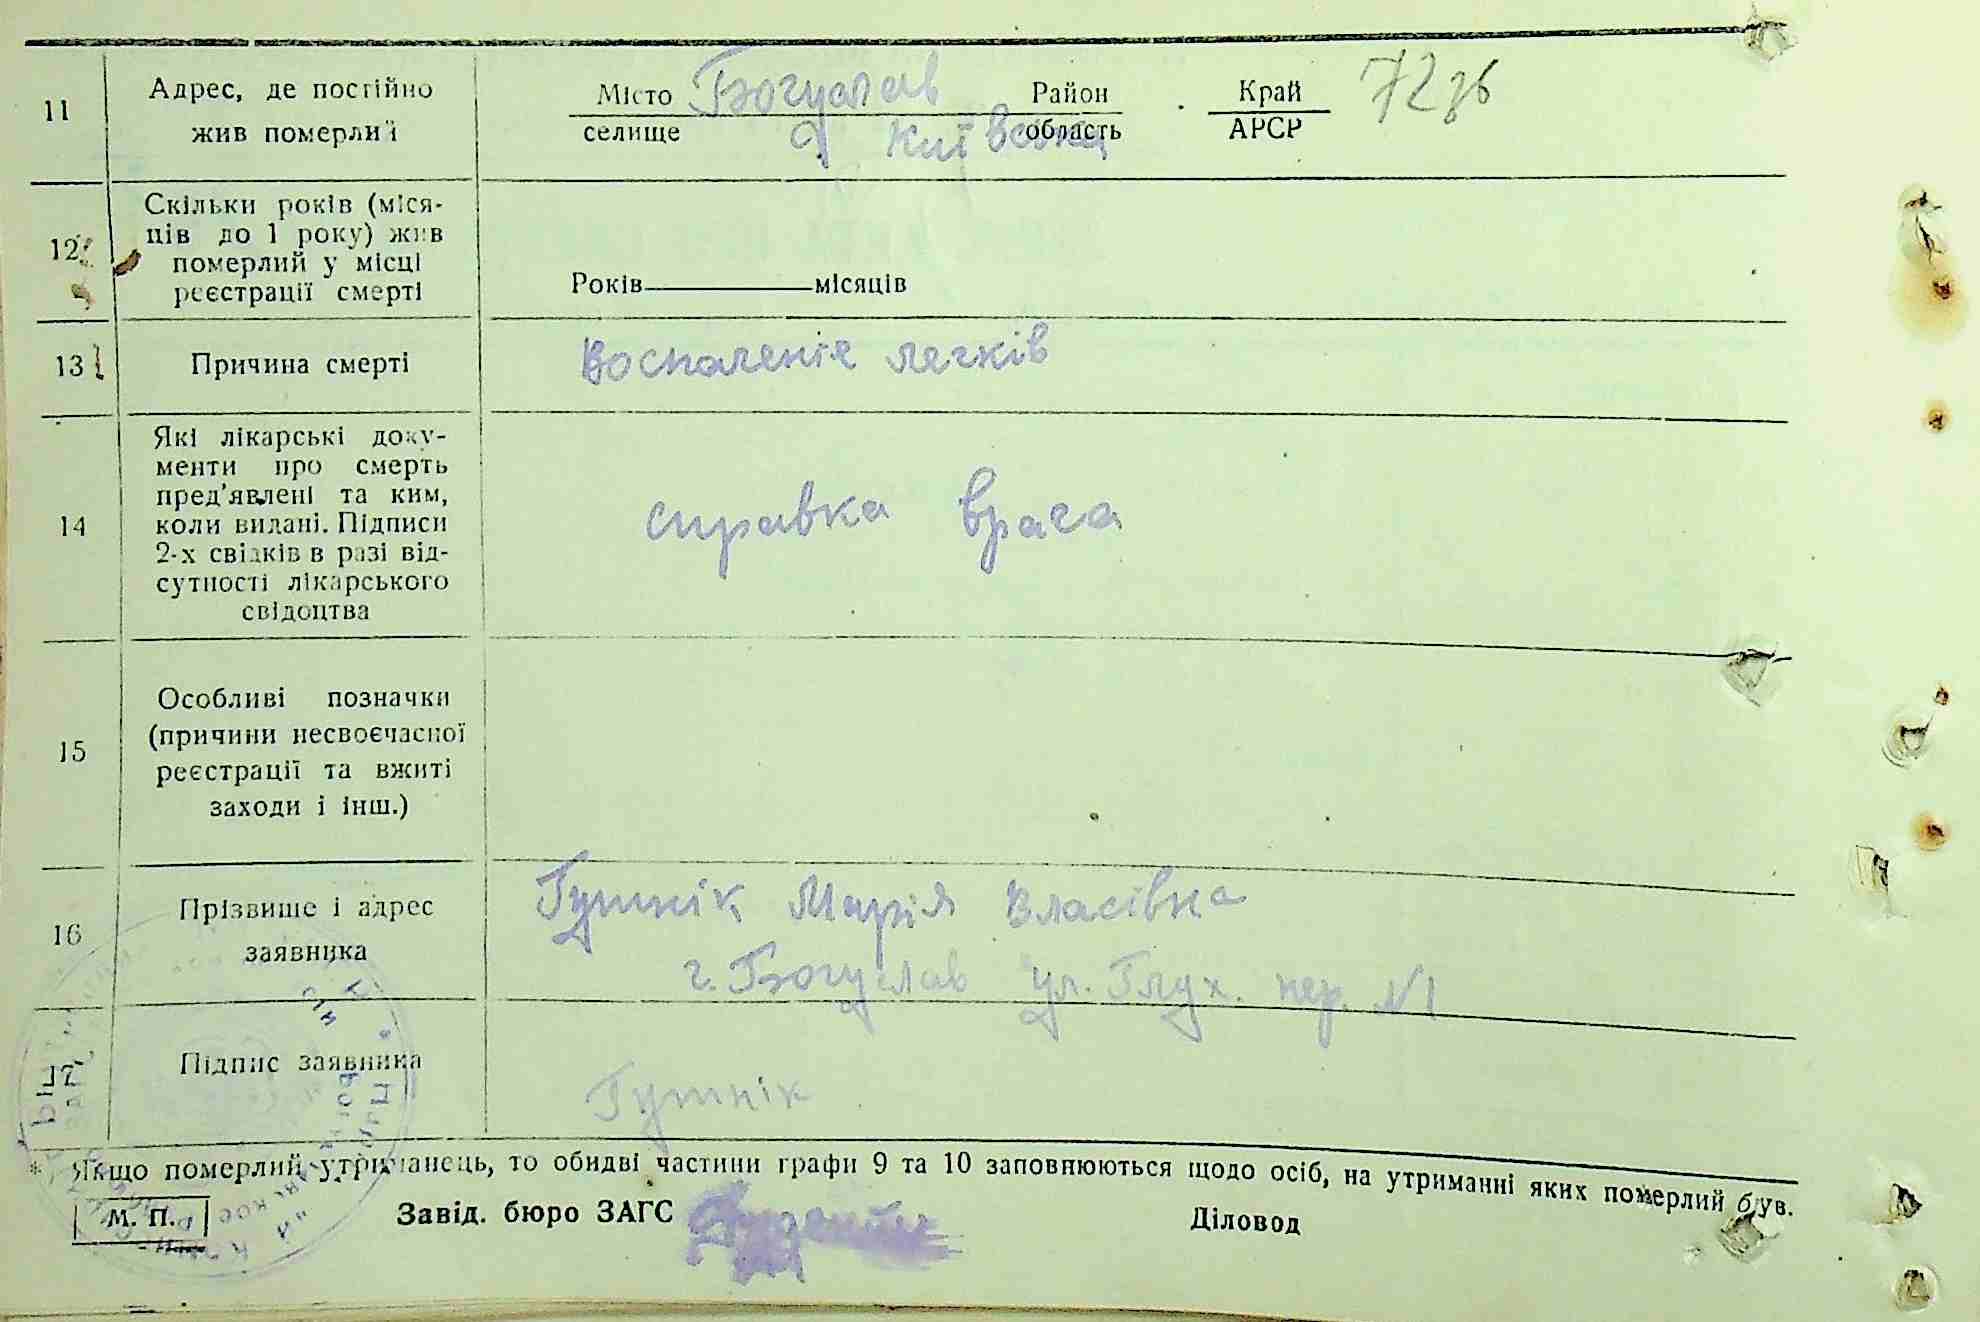 11
Адрес, де постійно
жив померлий
Місто Богуслав Район Край 72зв
селище Київська область АРСР
12
Скільки років (міся-
ців до 1 року) жив
померлий у місці
реєстрації смерті
Років місяців
13
Причина смерті
Воспаленіе легків
14
Які лікарські доку-
менти про смерть
пред'явлені та ким,
коли видані. Підписи
2-х свідків в разі від-
сутності лікарського
свідоцтва
справка врача
15
Особливі позначки
(причини несвоєчасної
реєстрації та вжиті
заходи і інш.)
16
Прізвище і адрес
заявника
Гутнік Марія Власівна
г. Богуслав ул. Глух. пер. №1
17
Підпис заявника
Гутнік
* Якщо померлий утриманець, то обидві частини графи 9 та 10 заповнюються щодо осіб, на утриманні яких померлий був.
М. П. Завід. бюро ЗАГС Діловод